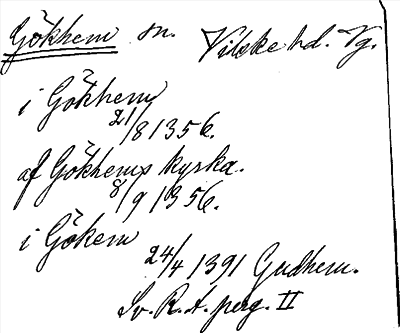 Gökhem sn. Vilske hd. Vg.
i Gökhem
21/8 1356.
af Gökhems kyrka.
8/9 1356.
i Gökem
24/4 1391 Gudhem.
Sv. R. A. perg. II